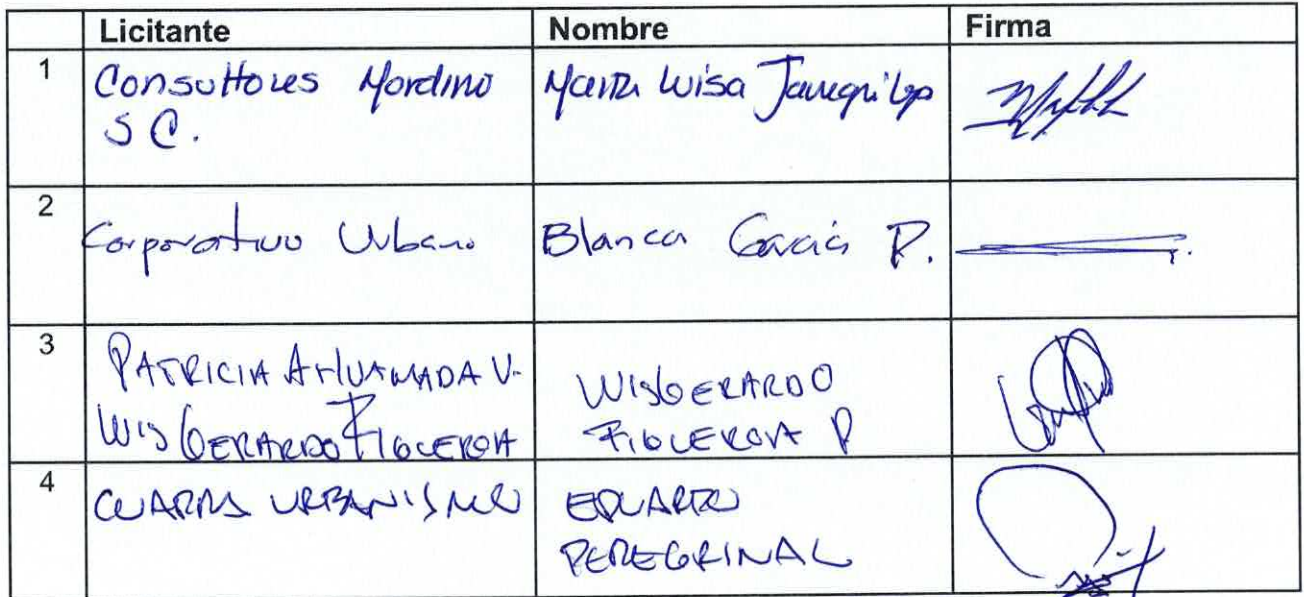 Licitante Nombre Firma
1 Consultores Mardino Maria Luisa Jauregui
S C.
2 Corporativo Urbano Blanca Garcia P.
3 PATRICIA AHUAMADA V. LUIS GERARDO
LUIS GERARDO FIGUEROA FIGUEROA P
4 URBANISMO EDUARDO
PEREGRINA L